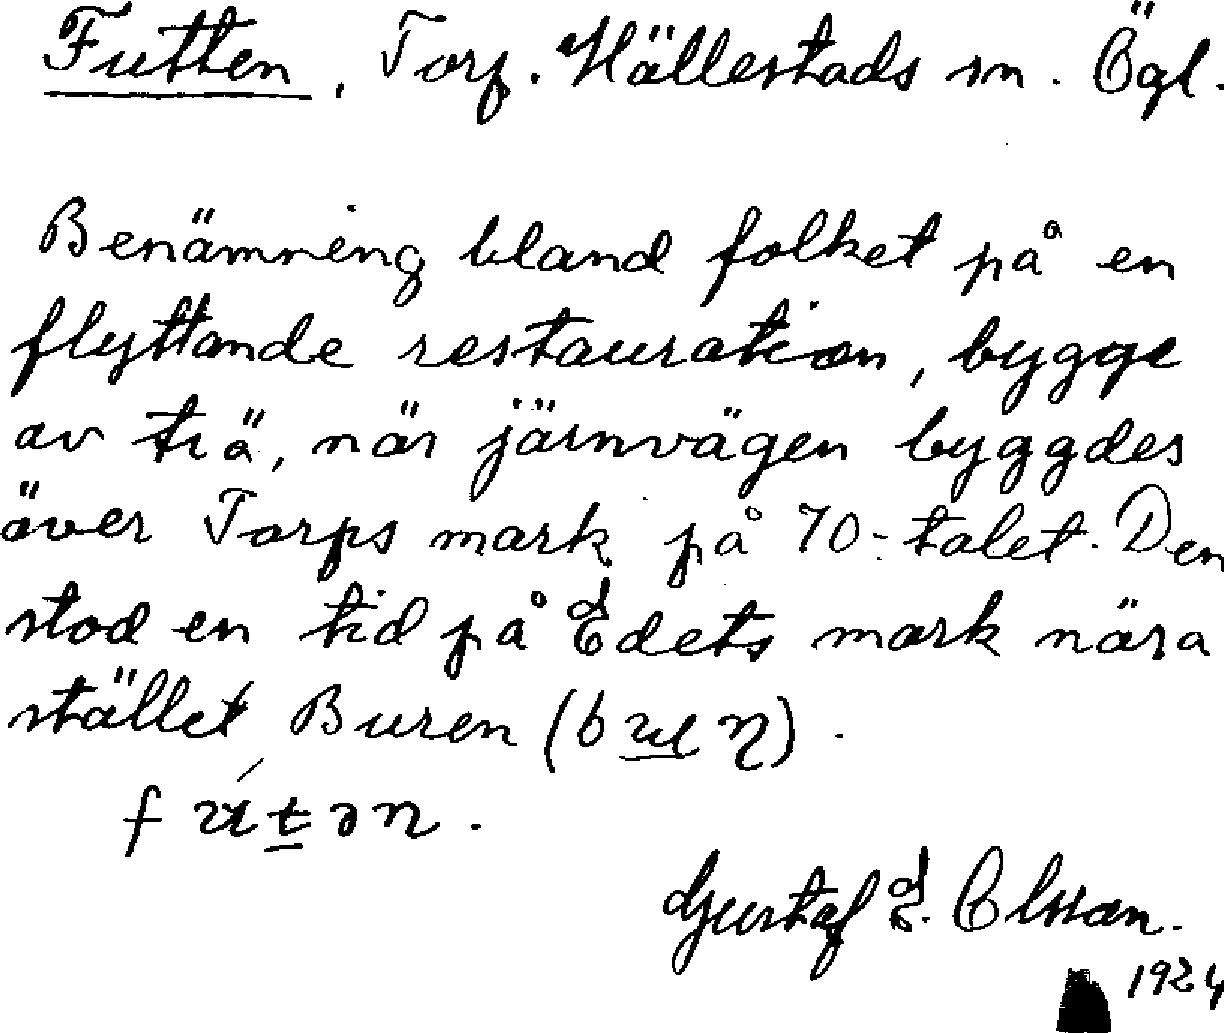 Futten, Torp. Hällestads sn. Ögl.
Benämning bland folket på en
flyttande restauration, bygge
av trä, när järnvägen byggdes
över Torps mark på 70-talet. Den
stod en tid på Edets mark nära
stället Buren
Gustaf E. Olsson.
1924